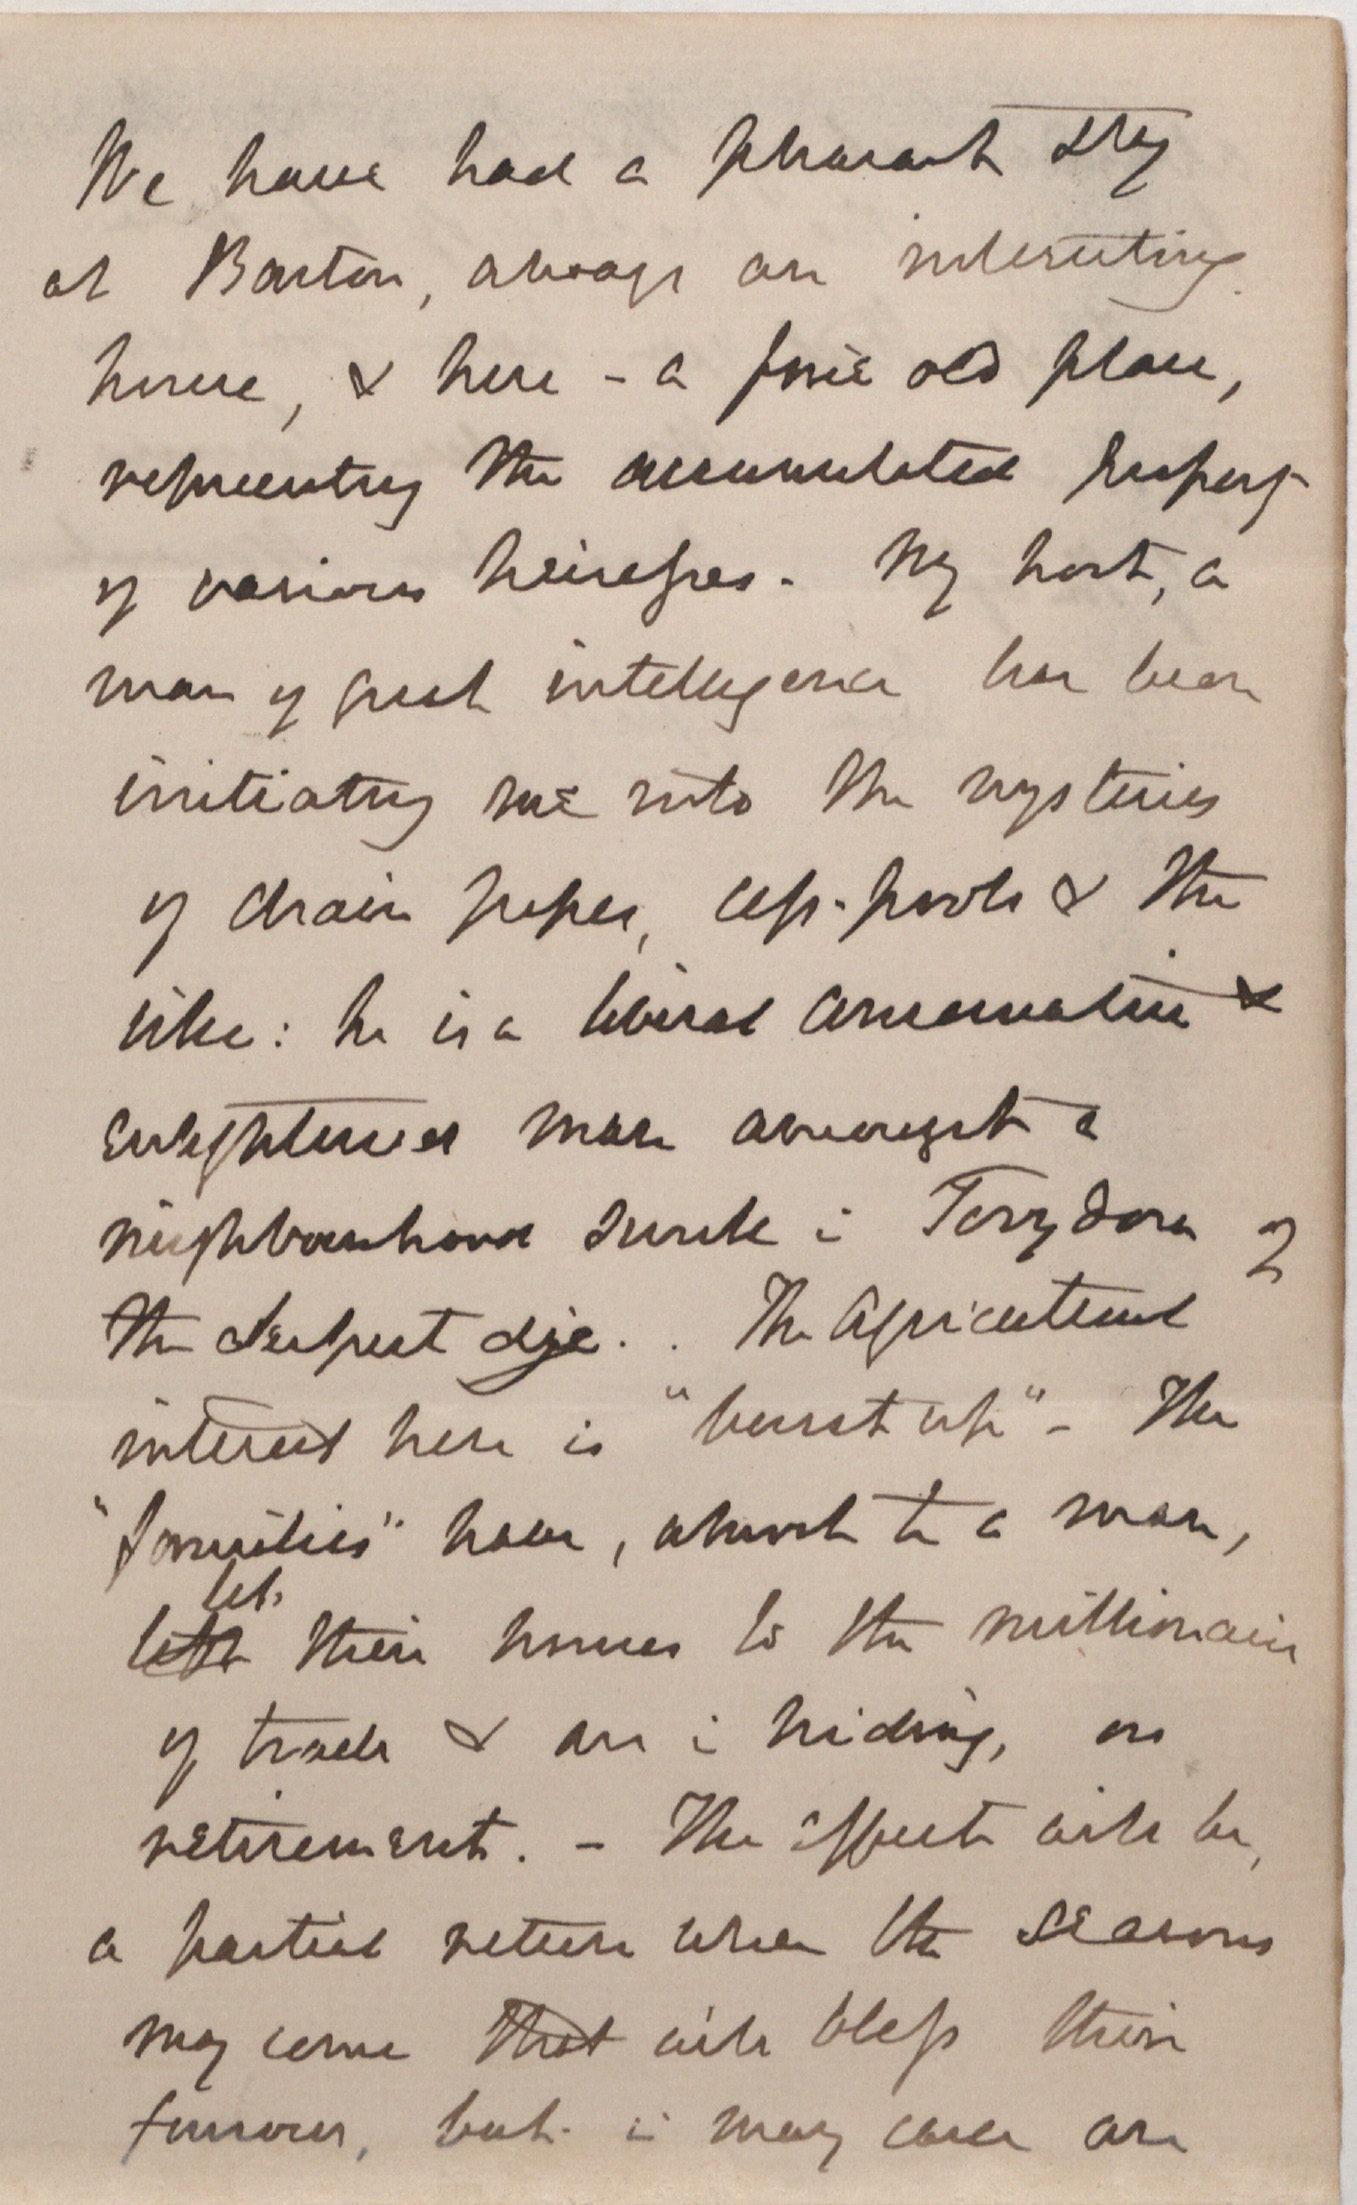 We have had a pleasant stay
at Barton, always an interesting
house, & here - a fine old place,
representing the accumulated property
of various heiresses. My host, a
man of great intelligence has been
initiating me into the mysteries
of drain pipes, cess-pools & the
like: he is a liberal conservative &
enlightened man amongst a
neighbourhood sunk in Torydom of
the deepest dye. . The Agricultural
interest here is "burst up" - The
"families" have, almost to a man,
let their houses to the millionaires
of trade & are in hiding, or
retirement. - The effect will be,
a partial return when the seasons
may come that will bless their
furrows, but in many cases an